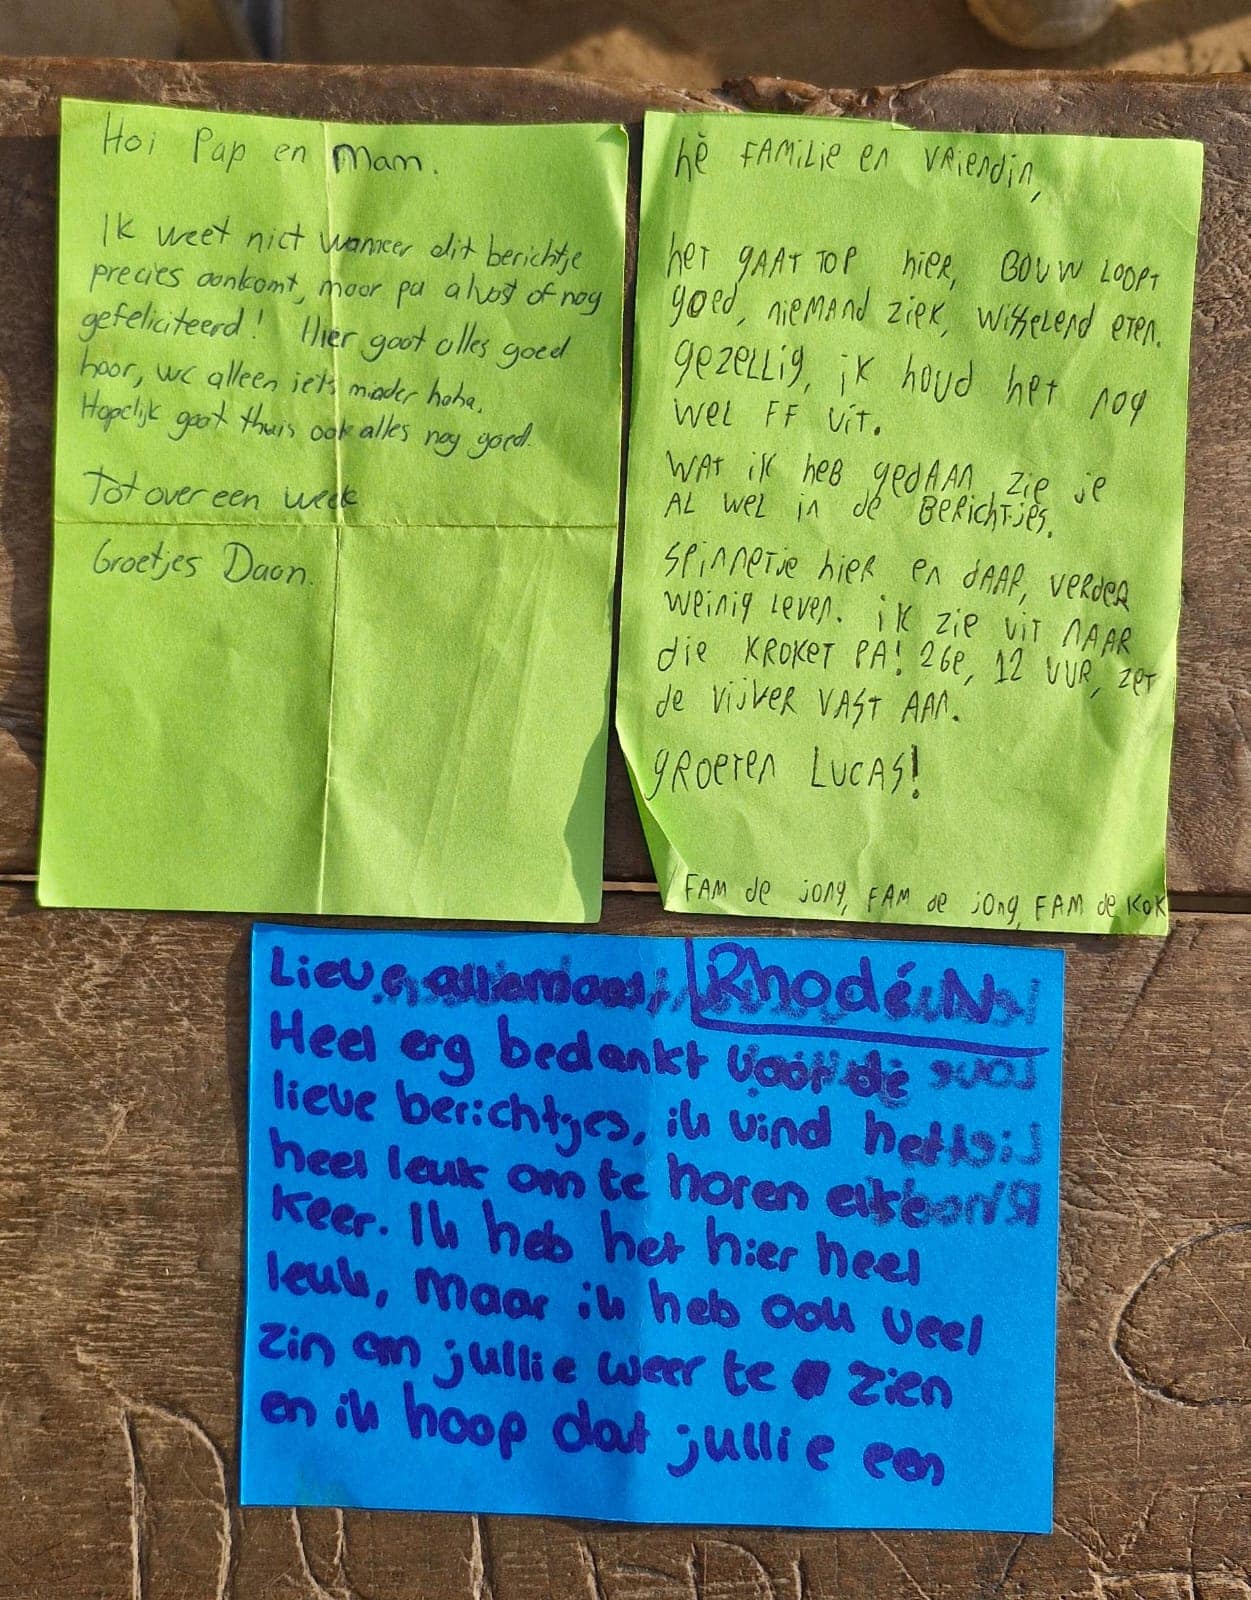 Hoi Pap en Mam.
Ik weet niet wanneer dit berichtje
precies aankomt, maar pa alvast of nog
gefeliciteerd! Hier gaat alles goed
hoor, wc alleen iets minder haha.
Hopelijk gaat thuis ook alles nog goed.
Tot over een week
Groetjes Daan.
hè FAMiLie en VRiendin,
het gAAT TOP hieR, BOUW LOOPT
goed, niemand ziek, wisselend eten.
gezellig, ik houd het nog
wel FF uit.
WAT ik heb gedAAn zie je
AL wel in de BeRichtjes.
Spinnetje hier en dAAR, verder
weinig leven. ik zie uit nAAR
die KROKET PA! 26e, 12 UUR, zet
de vijver VAST AAn.
gROeTen LUCAS!
FAM de jong, FAM de jong, FAM de KOK
Lieve allemaal, Rhodé.N
Heel erg bedankt voor de
lieve berichtjes, ik vind het
heel leuk om te horen elke
keer. Ik heb het hier heel
leuk, maar ik heb ook veel
zin om jullie weer te zien
en ik hoop dat jullie een